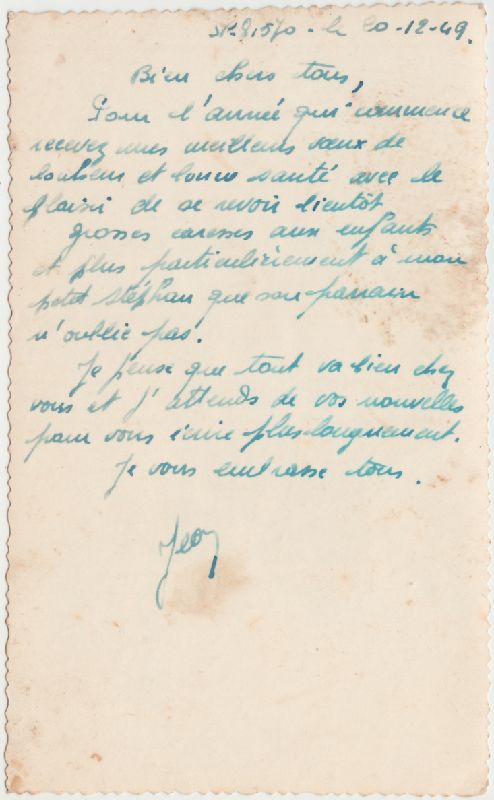 SP 81.570 - le 20-12-49.
Bien chers tous,
Pour l'année qui commence
recevez mes meilleurs vœux de
bonheur et bonne santé avec le
plaisir de se revoir bientôt
grosses caresses aux enfants
et plus particulièrement à mon
petit stéphan que son parrain
n'oublie pas.
Je pense que tout va bien chez
vous et j'attends de vos nouvelles
pour vous écrire plus longuement.
Je vous embrasse tous.